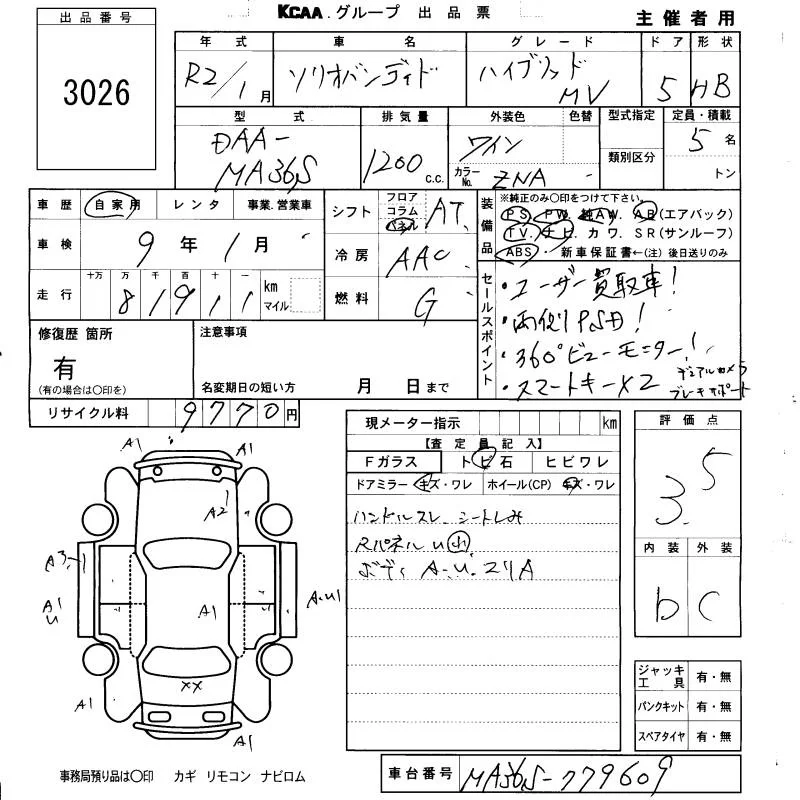 KCAA.グループ 出品票
主催者用
出品番号
3026
年式 車名 グレード ドア 形状
R2/1月 ソリオバンディド ハイブリッド MV 5 HB
型式 排気量 外装色 色替 型式指定 定員・積載
DAA-
MA36S
1200 c.c.
ワイン
カラーNo. ZNA
類別区分
5 名
トン
車歴 自家用 レンタ 事業.営業車
車検 9年1月
走行 十万 万 千 百 十 一
81911 km マイル
シフト フロア コラム パネル AT
冷房 AAC
燃料 G
装備品 ※純正のみ〇印をつけて下さい。
PS. PW. 純AW. AB(エアバック)
TV. ナビ. カワ. SR(サンルーフ)
ABS. 新車保証書←(注)後日送りのみ
セールスポイント
・ユーザー買取車!
・両側PSD!
・360°ビューモニター!
・スマートキー×2
デュアルカメラ
ブレーキサポート
修復歴 箇所
有
(有の場合は〇印を)
注意事項
名変期日の短い方 月 日まで
リサイクル料 9770円
現メーター指示 km
【査定員記入】
Fガラス トビ石 ヒビワレ
ドアミラー キズ・ワレ ホイール(CP) キズ・ワレ
ハンドルスレ シートしみ
RパネルU小
ボディ A.U.スリA
評価点
3.5
内装 外装
b C
ジャッキ工具 有・無
パンクキット 有・無
スペアタイヤ 有・無
A1 A1
A2
A3
A1
U
A1
A.U1
XX
A1 A1
A1
事務局預り品は〇印 カギ リモコン ナビロム
車台番号 MA36S-779609